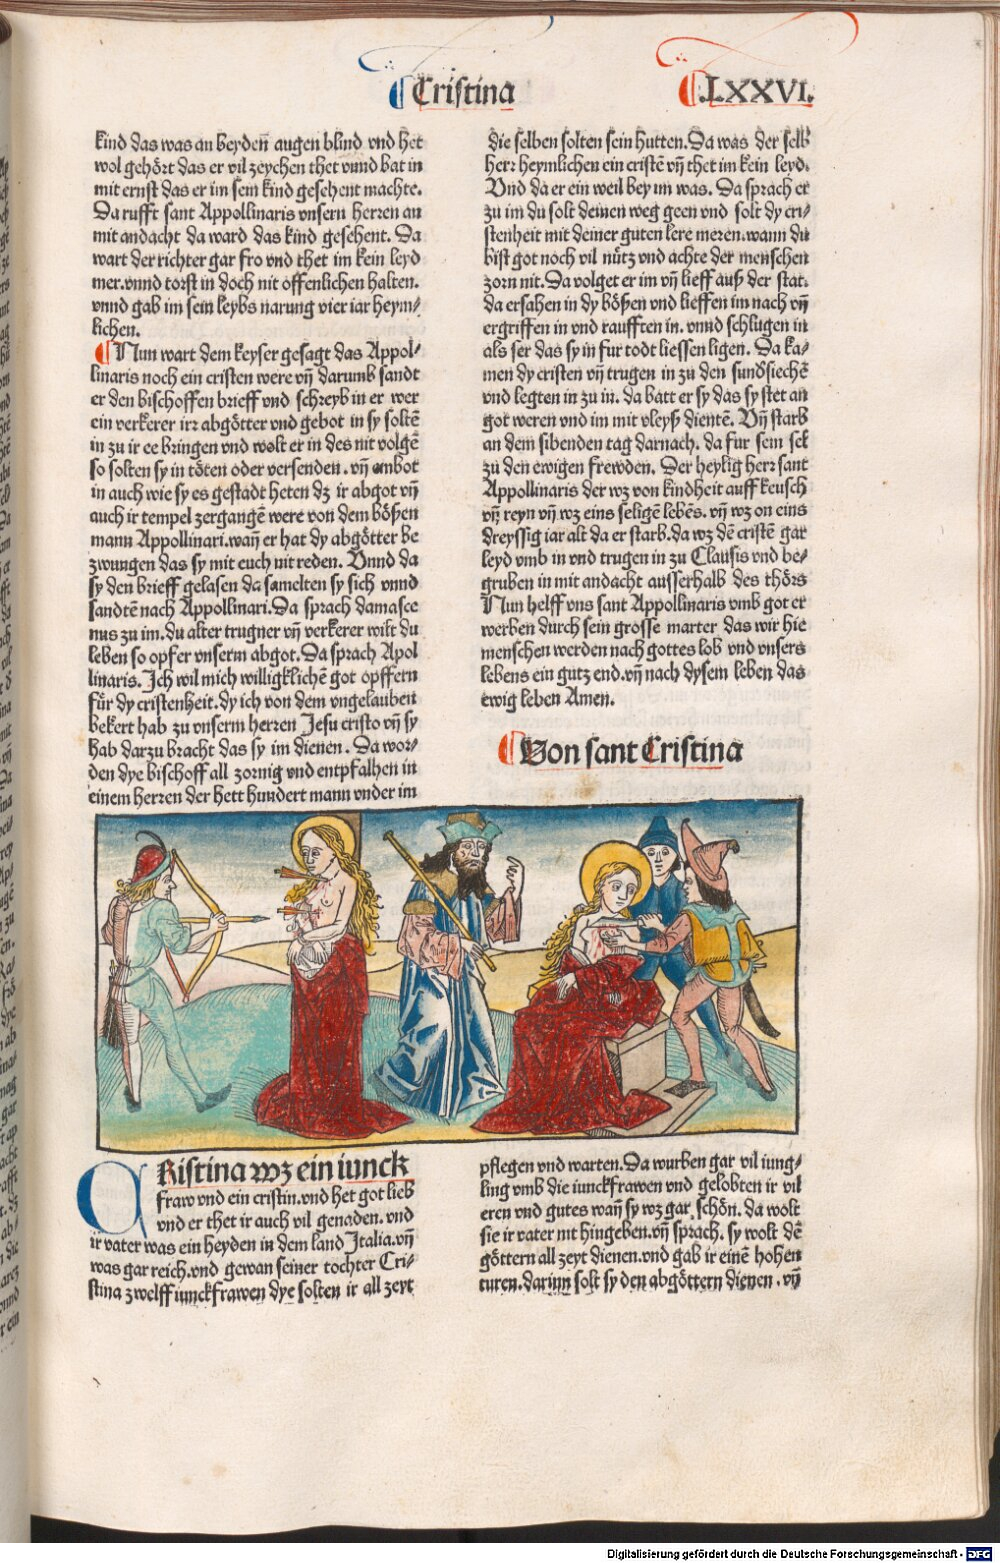 Cristina
.LXXVI.
kind das was an beyden̄ augen blind vnd het
wol gehört das er vil zeychen thet vnnd bat in
mit ernst das er im sein kind gesehent machte.
Da rufft sant Appollinaris vnsern herren an
mit andacht da ward das kind gesehent. Da
wart der richter gar fro vnd thet im kein leyd
mer. vnnd torst in doch nit offenlichen halten.
vnnd gab im sein leybs narung vier iar heym⸗
lichen.
Nun wart dem keyser gesagt das Appol⸗
linaris noch ein cristen were vn̄ darumb sandt
er den bischoffen brieff vnd schreyb in er wer
ein verkerer irr abgötter vnd gebot in sy soltē
in zu ir ee bringen vnd wolt er in des nit volgē
so solten sy in töten oder versenden. vn̄ enbot
in auch wie sy es gestadt heten dz ir abgot vn̄
auch ir tempel zergangē were von dem bößen
mann Appollinari. wan̄ er hat dy abgötter be
zwungen das sy mit euch nit reden. Vnnd da
sy den brieff gelasen da samelten sy sich vnnd
sandtē nach Appollinari. Da sprach damasce
nus zu im. du alter trugner vn̄ verkerer wilt du
leben so opfer vnserm abgot. Da sprach Apol
linaris. Ich wil mich willigklichē got opffern
für dy cristenheit. dy ich von dem vngelauben
bekert hab zu vnserm herren Jesu cristo vn̄ sy
hab darzu bracht das sy im dienen. Da wor⸗
den dye bischoff all zornig vnd entpfalhen in
einem herren der hett hundert mann vnder im
die selben solten sein hutten. Da was der selb
herr heymlichen ein cristē vn̄ thet im kein leyd.
Vnd da er ein weil bey im was. Da sprach er
zu im du solt deinen weg geen vnd solt dy cri⸗
stenheit mit deiner guten lere meren. wann du
bist got noch vil nütz vnd achte der menschen
zorn nit. Da volget er im vn̄ lieff auß der stat.
da ersahen in dy bößen vnd lieffen im nach vn̄
ergriffen in vnd raufften in. vnnd schlugen in
als ser das sy in fur todt liessen ligen. Da ka⸗
men dy cristen vn̄ trugen in zu den sundsiechē
vnd legten in zu in. da batt er sy das sy stet an
got weren vnd im mit vleyß dientē. Vn̄ starb
an dem sibenden tag darnach. da fur sein sel
zu den ewigen frewden. Der heylig herr sant
Appollinaris der wz von kindheit auff keusch
vn̄ reyn vn̄ wz eins seligē lebēs. vn̄ wz on eins
dreyssig iar alt da er starb. da wz dē cristē gar
leyd vmb in vnd trugen in zu Clausis vnd be⸗
gruben in mit andacht ausserhalb des thörs
Nun helff vns sant Appollinaris vmb got er
werben durch sein grosse marter das wir hie
menschen werden nach gottes lob vnd vnsers
lebens ein gutz end. vn̄ nach dysem leben das
ewig leben Amen.
Von sant Cristina
CRistina wz ein iunck
fraw vnd ein cristin. vnd het got lieb
vnd er thet ir auch vil genaden. vnd
ir vater was ein heyden in dem land Italia. vn̄
was gar reich. vnd gewan seiner tochter Cri⸗
stina zwelff iunckfrawen dye solten ir all zeyt
pflegen vnd warten. Da wurben gar vil iung⸗
ling vmb die iunckfrawen vnd gelobten ir vil
eren vnd gutes wan̄ sy wz gar schön. da wolt
sie ir vater nit hingeben. vn̄ sprach. sy wolt dē
göttern all zeyt dienen. vnd gab ir einē hohen
turen. darinn solt sy den abgöttern dienen. vn̄
Digitalisierung gefördert durch die Deutsche Forschungsgemeinschaft - DFG